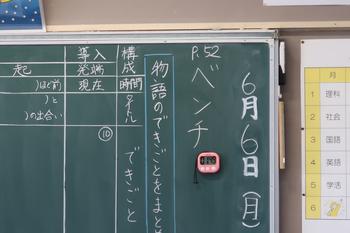 6月6日(月)
P.52
ベンチ
物語のできごとをまと
構成
時間
タイトル
できごと
導入
発端
現在
⑩
起
)ほど前
)と
)の出会い
月
1 理科
2 社会
3 国語
4 英語
5 学活
6